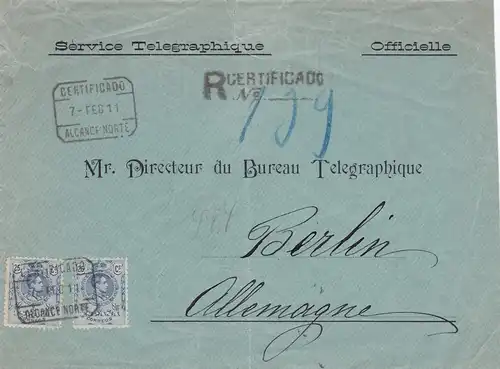 Service Telegraphique Officielle
CERTIFICADO
7-FEB 11
ALCANCE NORTE
R CERTIFICADO
Nº 139
Mr. Directeur du Bureau Telegraphique
Berlin
Allemagne
ALCANCE NORTE